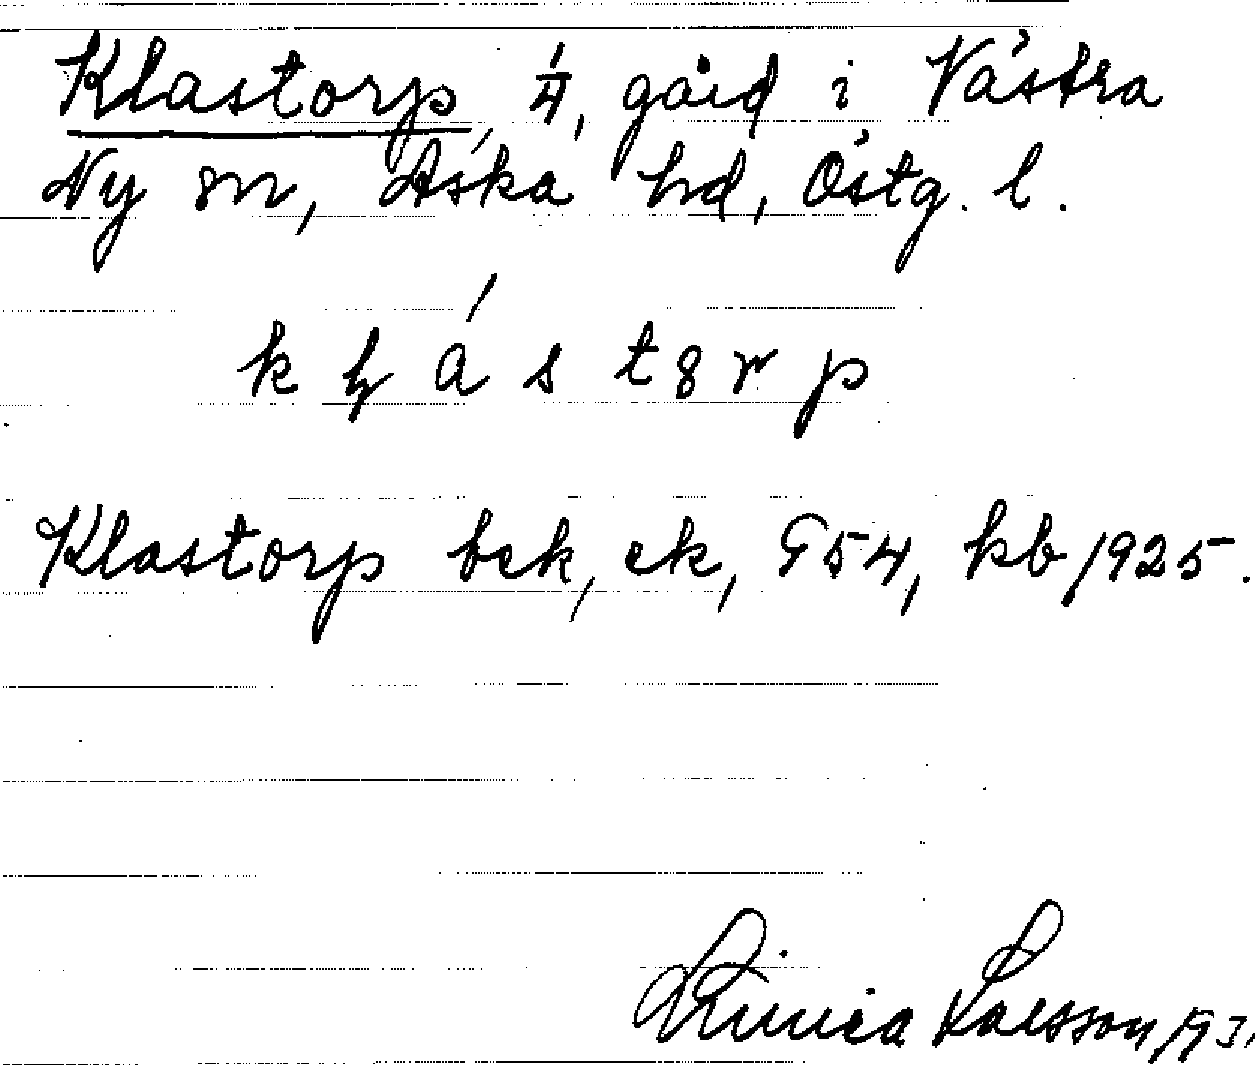 Klastorp, 4, gård i Västra
Ny sn, Aska hd, Östg. l.
k ḷ á s t 8 r p
Klastorp bek, ek, G54, kb 1925.
Linnéa Larsson 193